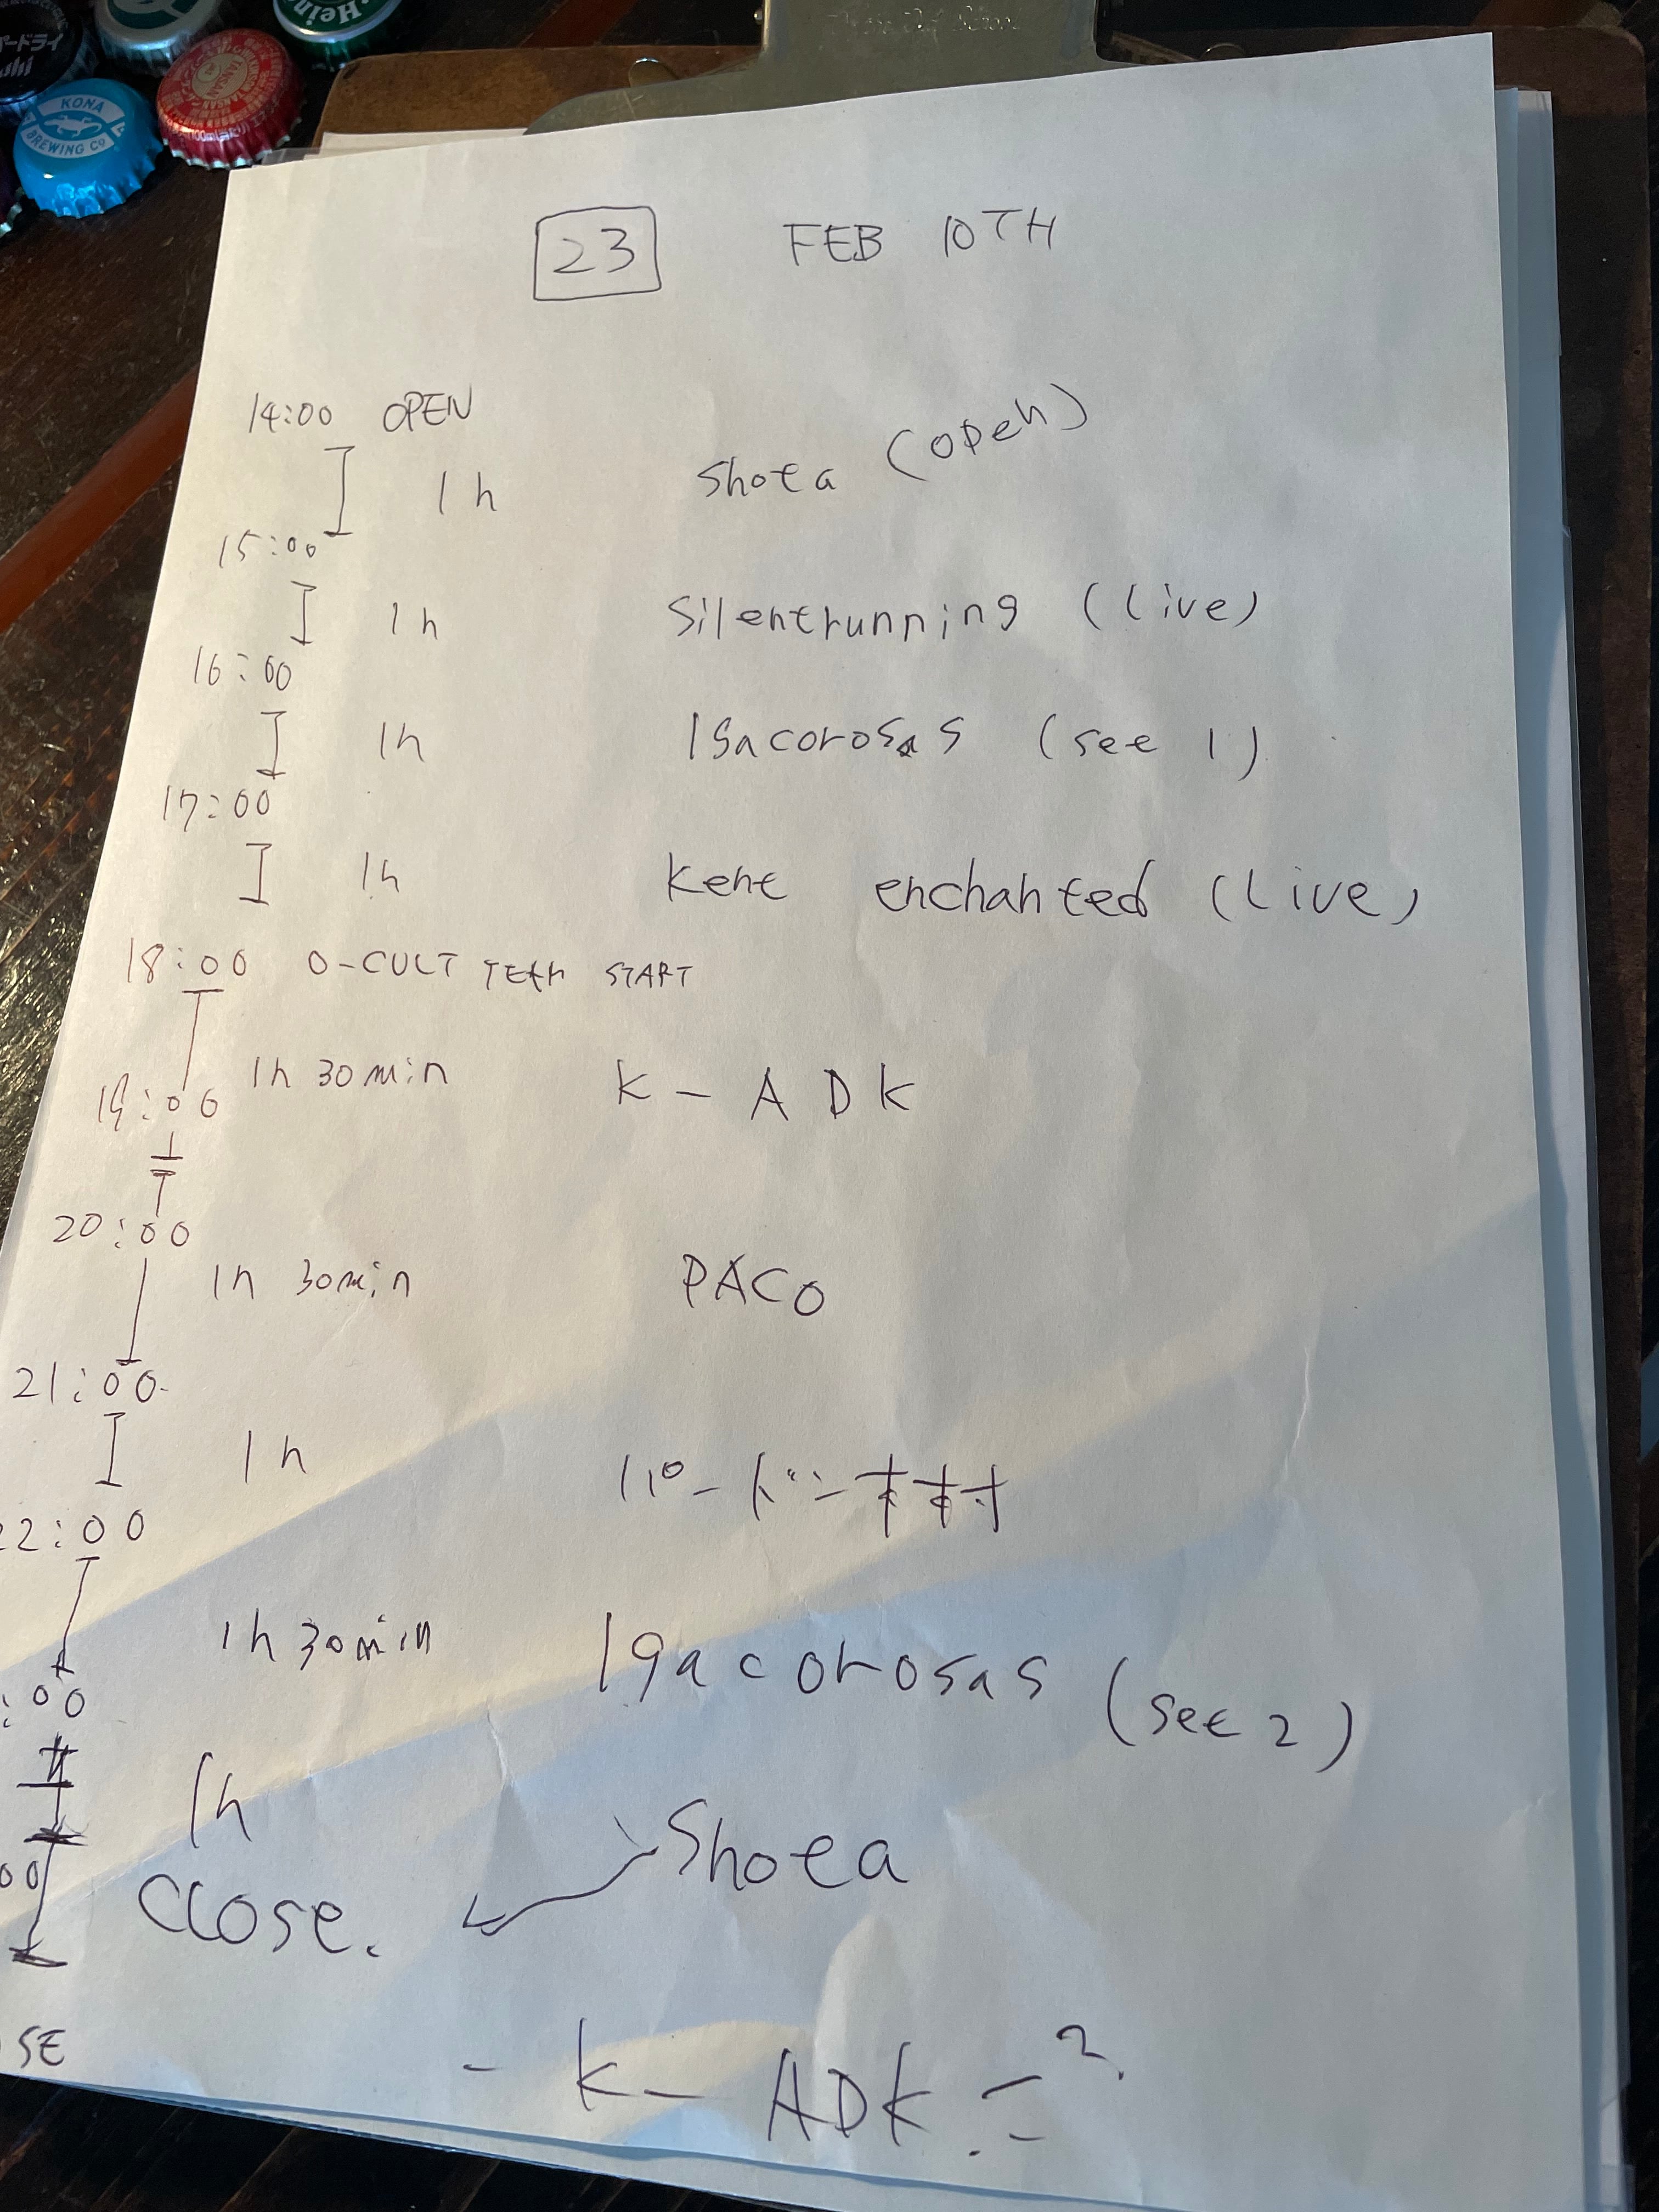 Hein
KONA
BREWING CO
23 FEB 10TH
14:00 OPEN
1h Shota (open)
15:00
1h Silentrunning (Live)
16:00
1h Isacorosas (set 1)
17:00
1h Kent enchanted (Live)
18:00 O-CULT TEAM START
19:00 1h 30min K-ADK
20:00
1h 30min PACO
21:00
1h ハードー村村
22:00
1h 30min Igacorosas (set 2)
:00
1h Shota
00 Close.
SE
- K-ADK